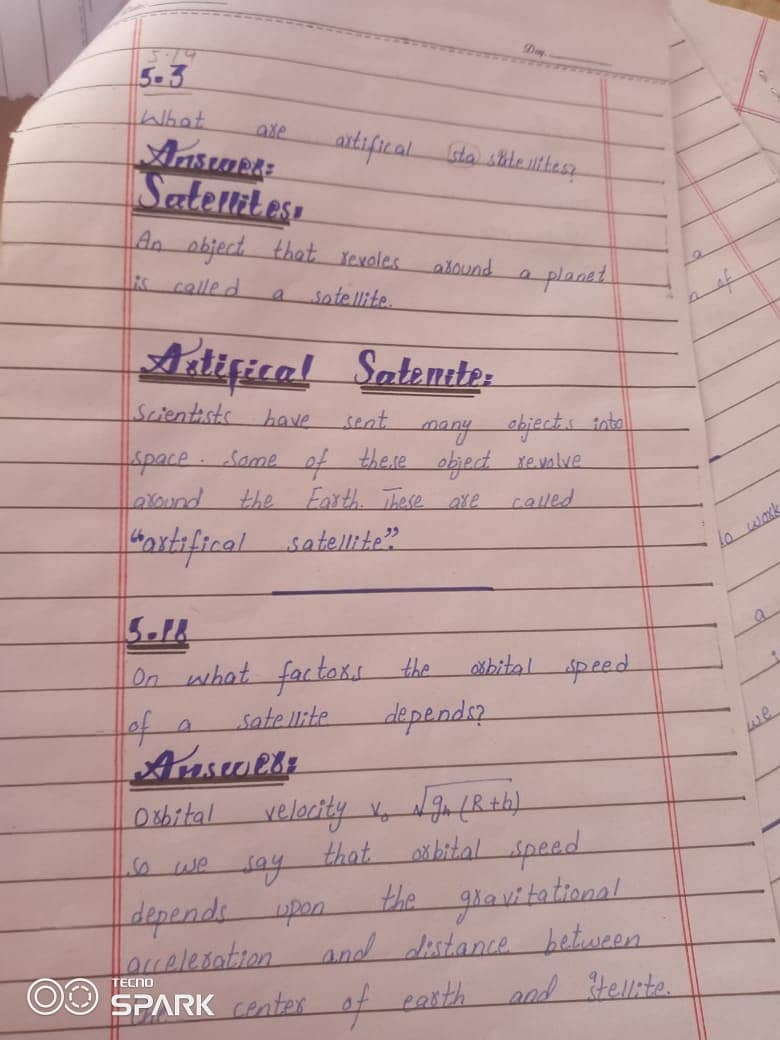 Day.
5.14
5.3
What are artifical sta satellites?
Answer:
Satellites:
An object that revoles around a planet
is called a satellite.
Artifical Satellite:
Scientists have sent many objects into
space. Some of these object revolve
around the Earth. These are called
"artifical satellite".
5.18
On what factors the orbital speed
of a satellite depends?
Answer:
Orbital velocity v₀ √gₕ (R+h)
so we say that orbital speed
depends upon the gravitational
acceleration and distance between
the center of earth and stellite.
a
n of
to work
a
we
TECNO
SPARK